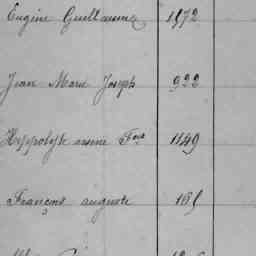 Eugène Guillaume 1972
Jean Marie Joseph 922
Hyppolyte arsene Fois 1149
François auguste 161